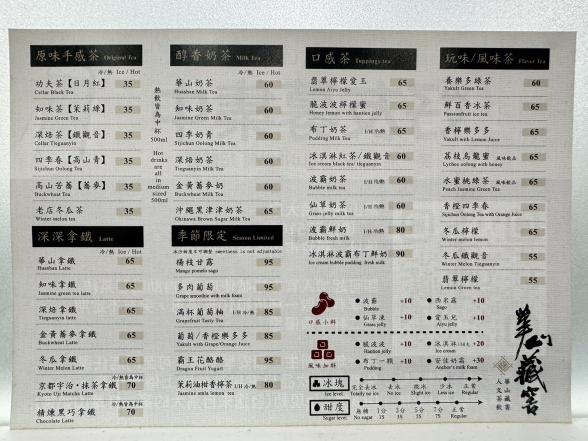 原味手感茶 Original Tea
冷/熱 Ice / Hot
功夫茶【日月紅】 35
Cellar Black Tea
知味茶【茉莉綠】 35
Jasmine Green Tea
深焙茶【鐵觀音】 35
Cellar Tieguanyin
四季春【高山青】 35
Sijichun Oolong Tea
高山苦蕎【蕎麥】 35
Buckwheat Tea
老店冬瓜茶 35
Winter melon tea
深深拿鐵 Latte
冷/熱 Ice / Hot
華山拿鐵 65
Huashan Latte
知味拿鐵 65
Jasmine green tea latte
深焙拿鐵 65
Tieguanyin latte
金黃蕎麥拿鐵 65
Buckwheat Latte
冬瓜拿鐵 65
Winter Melon Latte
京都宇治·抹茶拿鐵 70
Kyoto Uji Matcha Latte
精煉黑巧拿鐵 70
Chocolate Latte
熱飲皆為中杯500ml
Hot drinks are all in medium sized 500ml
醇香奶茶 Milk Tea
冷/熱 Ice / Hot
華山奶茶 60
Huashan Milk Tea
知味奶茶 60
Jasmine Green Tea
四季奶青 60
Sijichun Oolong Milk Tea
深焙奶茶 60
Tieguanyin Milk Tea
金黃蕎麥奶 60
Buckwheat Milk Tea
沖繩黑津津奶茶 65
Okinawa Brown Sugar Milk Tea
季節限定 Season Limited
冰沙甜度不可調整 sweetness is not adjustable
楊枝甘露 95
Mango pomelo sago
多肉葡萄 95
Grape smoothie with milk foam
滿杯葡萄柚 I/H 冷熱 85
Grapefruit Tasty Tea
葡萄/香橙多多 85
Yakult with Grape/Orange Juice
霸王花酪酪 95
Dragon Fruit Yogurt
茉莉油柑香檸茶 I/H 冷/熱 80
Jasmine amla lemon tea
口感茶 Toppings tea
翡翠檸檬愛玉 65
Lemon Aiyu Jelly
朧波波檸檬蜜 65
Honey lemon with hantien jelly
布丁奶茶 I/H 冷/熱 65
Pudding Milk Tea
冰淇淋紅茶/鐵觀音 60
Ice cream black tea/ tieguanyin
波霸奶茶 I/H 冷/熱 60
Bubble milk tea
仙草奶茶 I/H 冷/熱 60
Grass jelly milk tea
波霸鮮奶 I/H 冷/熱 80
Bubble fresh milk
冰淇淋波霸布丁鮮奶 90
Ice cream bubble pudding fresh milk
玩味/風味茶 Flavor Tea
養樂多綠茶 60
Yakult Green Tea
鮮百香冰茶 65
Passionfruit ice tea
香檸樂多多 65
Yakult with Lemon Juice
荔枝烏龍蜜 65
Lychee oolong with honey
水蜜桃綠茶 65
Peach Jasmine Green Tea
香橙四季春 65
Sijichun Oolong Tea with Orange Juice
冬瓜檸檬 65
Winter melon lemon
冬瓜鐵觀音 55
Winter Melon Tieguanyin
翡翠檸檬 55
Lemon Green Tea
口感小料
波霸 +10
Bubble
西米露 +10
Sago
仙草凍 +10
Grass jelly
愛玉兒 +10
Aiyu jelly
風味加料
朧波波 +10
Hantien jelly
冰淇淋 +20
Ice cream
布丁一顆 +10
Pudding
安佳奶霜 +30
Anchor's milk foam
冰塊 Ice level
完全去冰 去冰 微冰 少冰 正常
Totally no ice No ice Slight ice Less ice Regular
甜度 Sugar level
無糖 1分 3分 5分 7分 正常
No sugar 1S 3S 5S 7S Regular
華山藏窖
華山藏窖
人文茶飲